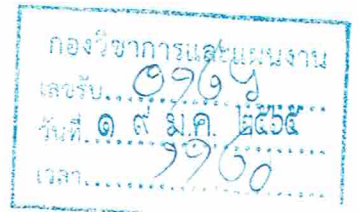 กองวิชาการและแผนงาน
เลขรับ
วันที่ ๑ ๙ ม.ค. ๒๕๖๕
เวลา